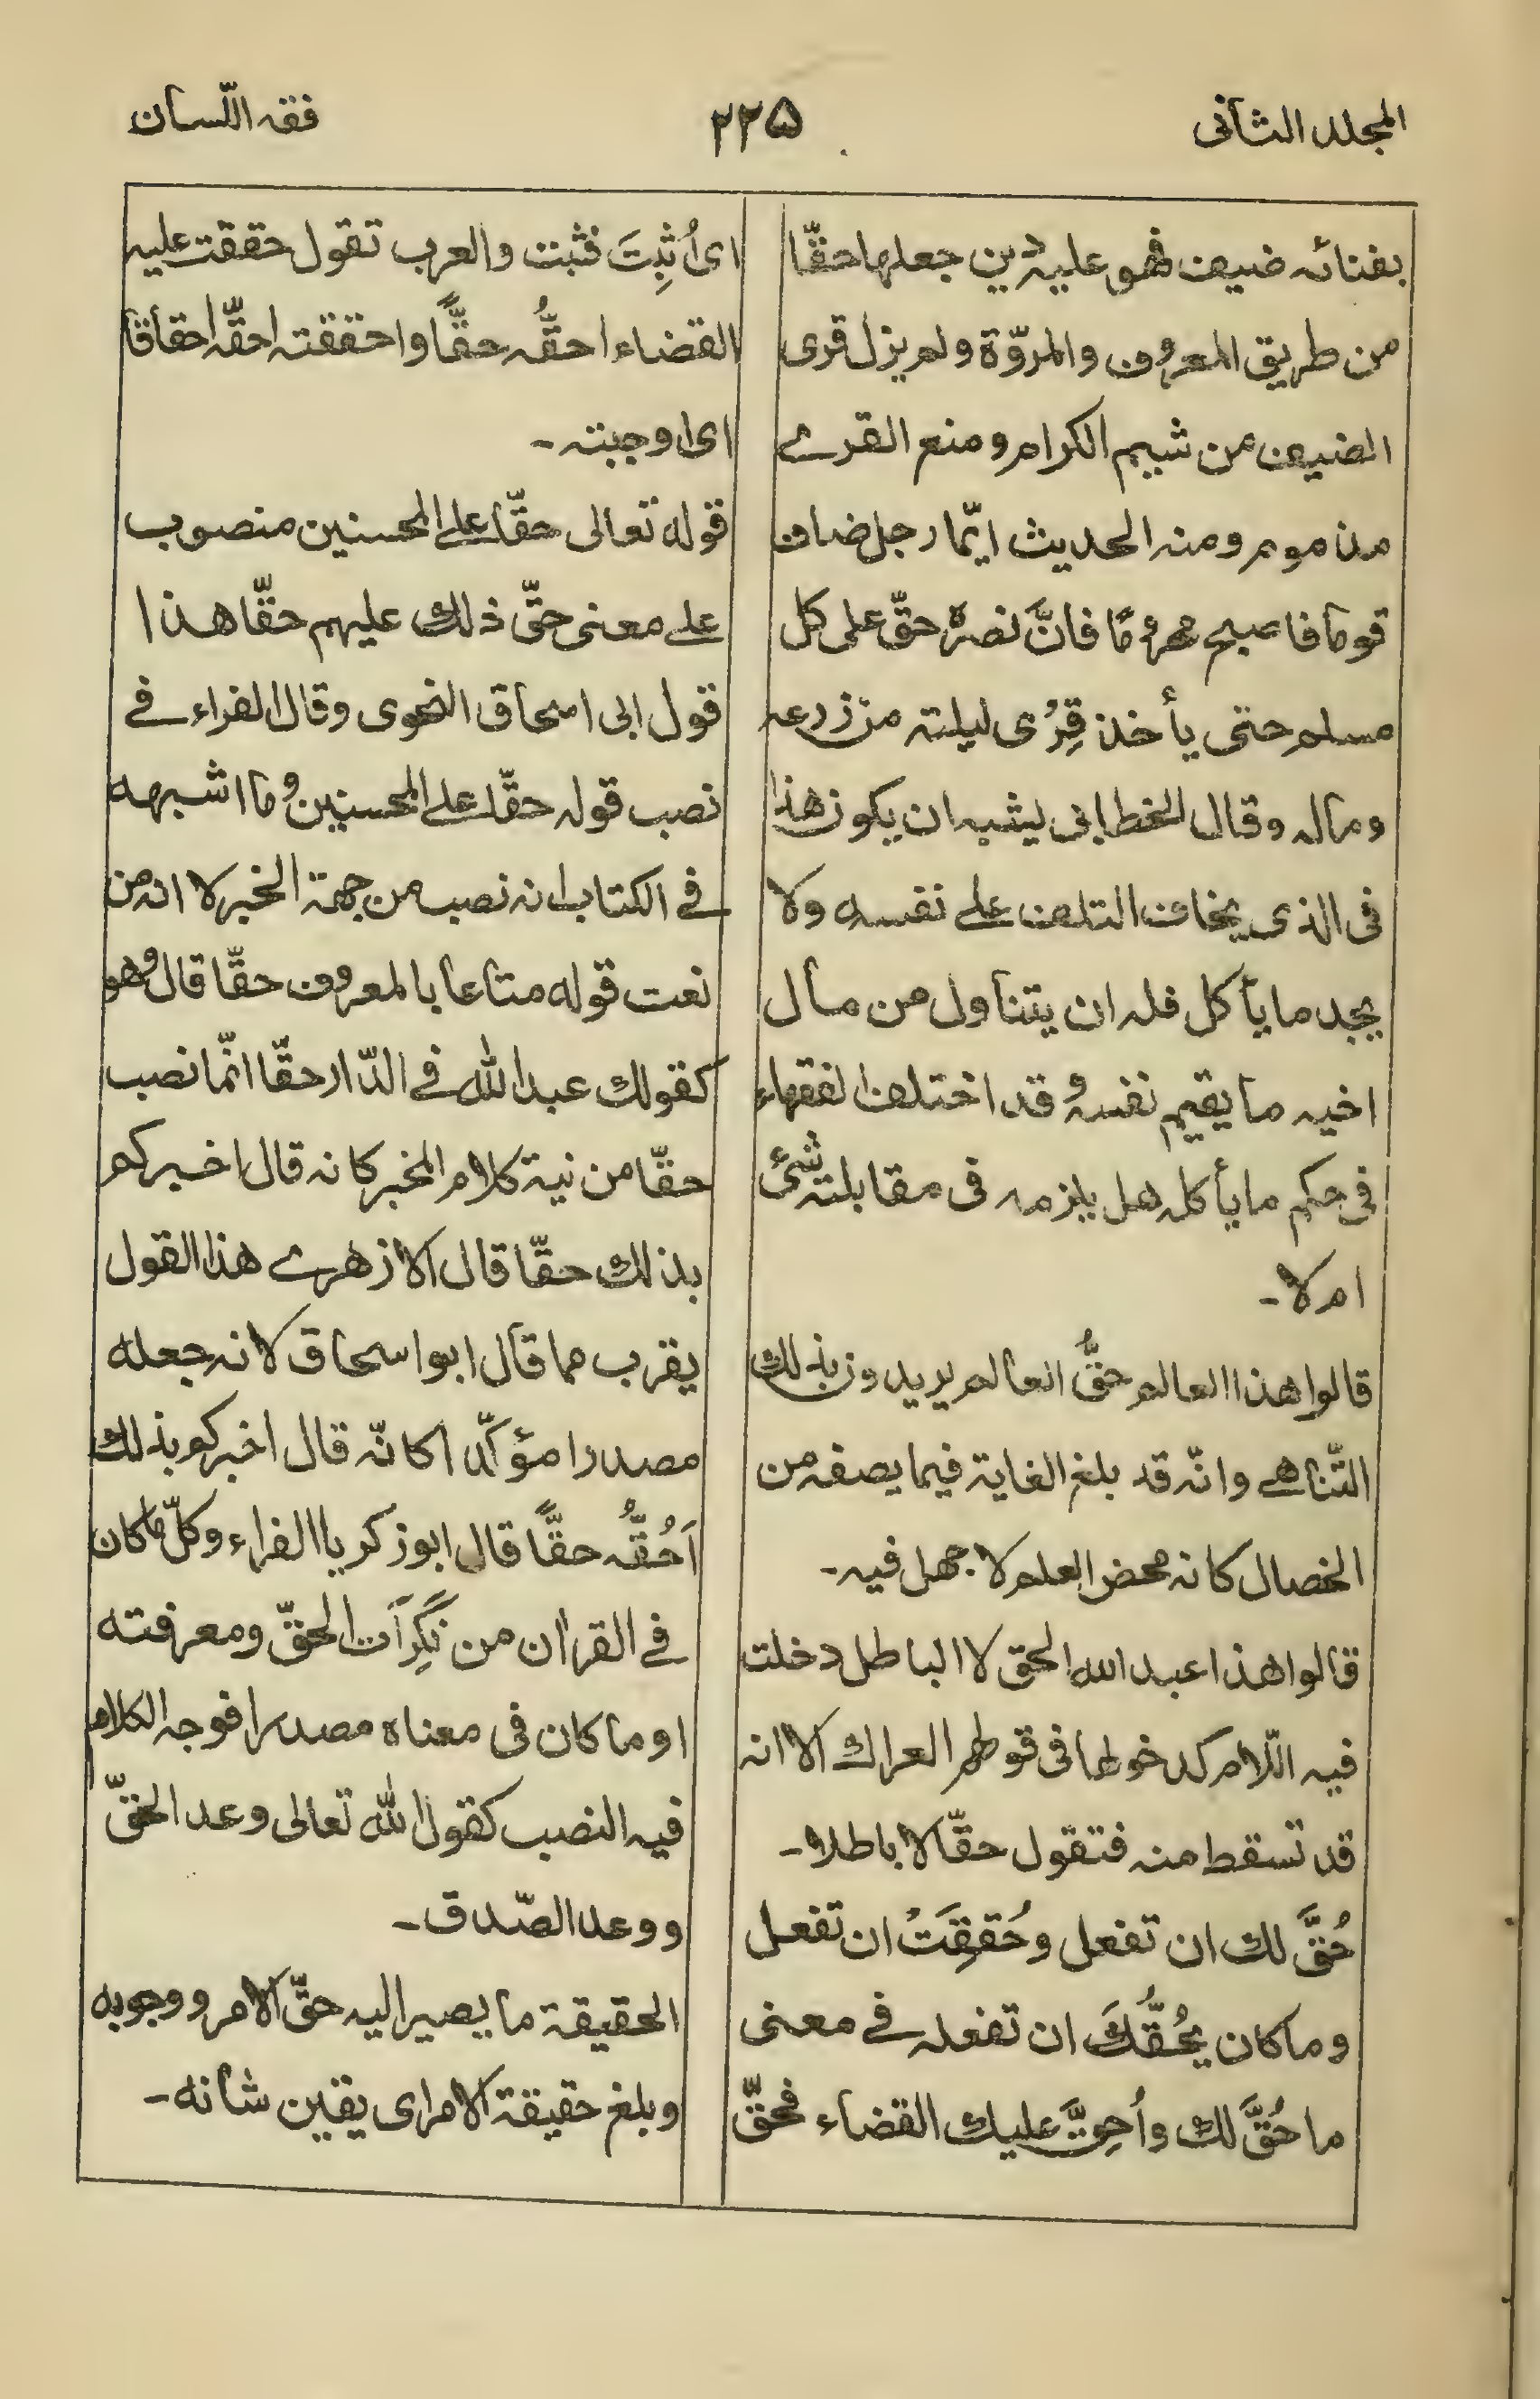 المجلد الثانی
۲۲۵
فقہ اللّسان
بفنائہ ضیف فهو علیہ دین جعلها حقّا
من طریق المعروف والمروّة ولم یزل قری
الضیف من شیم الکرام ومنع القرے
مذموم ومنہ الحدیث ایّما رجل ضاف
قوما فاصبح محروما فانَّ نصرہ حقّ علی کل
مسلم حتی یأخذ قِرٰی لیلتہ من زرعہ
ومالہ وقال الخطابی یشبہ ان یکون هذا
فی الذی یخاف التلف علے نفسہ ولا
یجد ما یأکل فلہ ان یتناول من مال
اخیہ ما یقیم نفسہ وقد اختلف الفقهاء
فی حکم ما یأکلہ هل یلزمہ فی مقابلتہ شیٔ
ام لا۔
قالوا هذا العالم حقُّ العالم یریدون بذلک
التّناهے وانّہ قد بلغ الغایة فیما یصفہ من
الخصال کانہ محض العلم لا جهل فیہ۔
قالوا هذا عبد الله الحق لا الباطل دخلت
فیہ اللّام کدخولها فی قولهم العراک الا انہ
قد تسقط منہ فتقول حقّا لا باطلا۔
حُقَّ لک ان تفعل وحُقِقَتْ ان تفعل
وما کان یَحُقُّکَ ان تفعلہ فے معنی
ما حُقَّ لک واُحِقَّ علیک القضاء فحقّ
ای اُثبِتَ فثبت والعرب تقول حققت علیہ
القضاء احقُّہ حقًّا واحققتہ احقّہ احقاقا
ای اوجبتہ۔
قولہ تعالی حقّا علے المحسنین منصوب
علے معنی حقّ ذلک علیهم حقّا هذا
قول ابی اسحاق النحوی وقال الفراء فے
نصب قولہ حقّا علے المحسنین وما اشبهہ
فے الکتاب انہ نصب من جهة الخبر لا انہ من
نعت قولہ متاعا بالمعروف حقّا قال وهو
کقولک عبد الله فے الدّار حقّا انّما نصب
حقّا من نیة کلام المخبر کانہ قال اخبرکم
بذلک حقّا قال الازهرے هذا القول
یقرب مما قال ابو اسحاق لانہ جعلہ
مصدرا مؤکّدا کانّہ قال اخبرکم بذلک
اَحُقُّہ حقًّا قال ابو زکریا الفراء وکلّ ما کان
فے القران من نَکِرَات الحقّ ومعرفتہ
او ما کان فی معناہ مصدرا فوجہ الکلام
فیہ النصب کقول الله تعالی وعد الحقّ
ووعد الصّدق۔
الحقیقة ما یصیر الیہ حقّ الامر ووجوبہ
وبلغ حقیقة الامر ای یقین شانہ۔